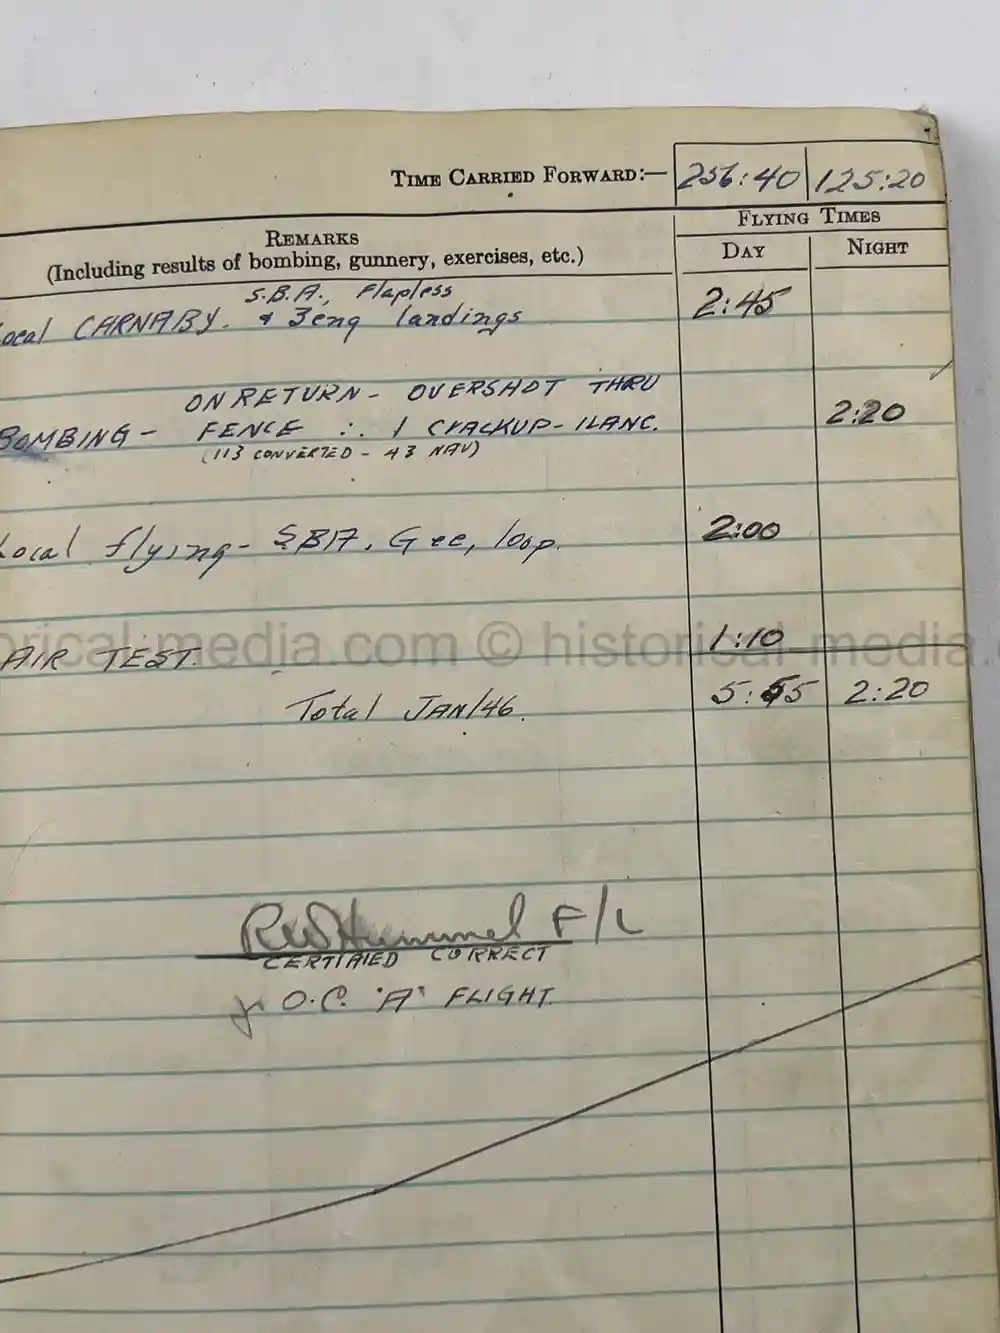 TIME CARRIED FORWARD:— 256:40 125:20
FLYING TIMES
REMARKS
(Including results of bombing, gunnery, exercises, etc.)
DAY NIGHT
S.B.A., Flapless
ocal CARNABY. & 3 eng landings 2:45
ON RETURN - OVERSHOT THRU
BOMBING - FENCE ∴ 1 CRACKUP - 1 LANC. 2:20
(113 CONVERTED - 43 NAV)
Local flying - SBA, Gee, loop. 2:00
orical-media.com © historical-media.c
AIR TEST. 1:10
Total JAN/46. 5:55 2:20
RW Hummel F/L
CERTIFIED CORRECT
O.C. "A" FLIGHT.